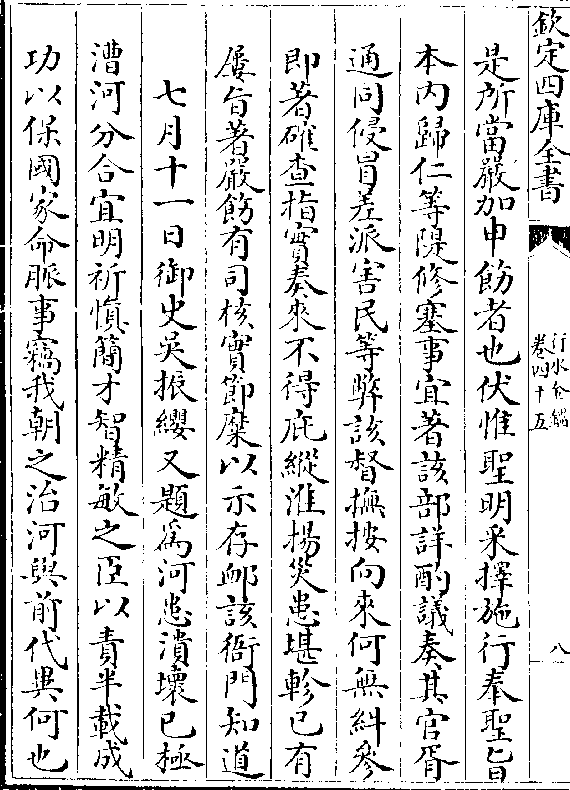 欽定四庫全書
行水金鑑
卷四十五
八
是所當嚴加申飭者也伏惟聖明采擇施行奉聖旨
本内歸仁等隄修塞事宜著該部詳酌議奏其官胥
通同侵冒差派害民等弊該督撫按向來何無糾參
即著確查指實奏來不得庇縱淮揚災患堪軫已有
屢旨著嚴飭有司核實節糜以示存邺該衙門知道
七月十一日御史吳振纓又題為河患潰壞已極
漕河分合宜明祈慎簡才智精敏之臣以責半載成
功以保國家命脈事竊我朝之治河與前代異何也